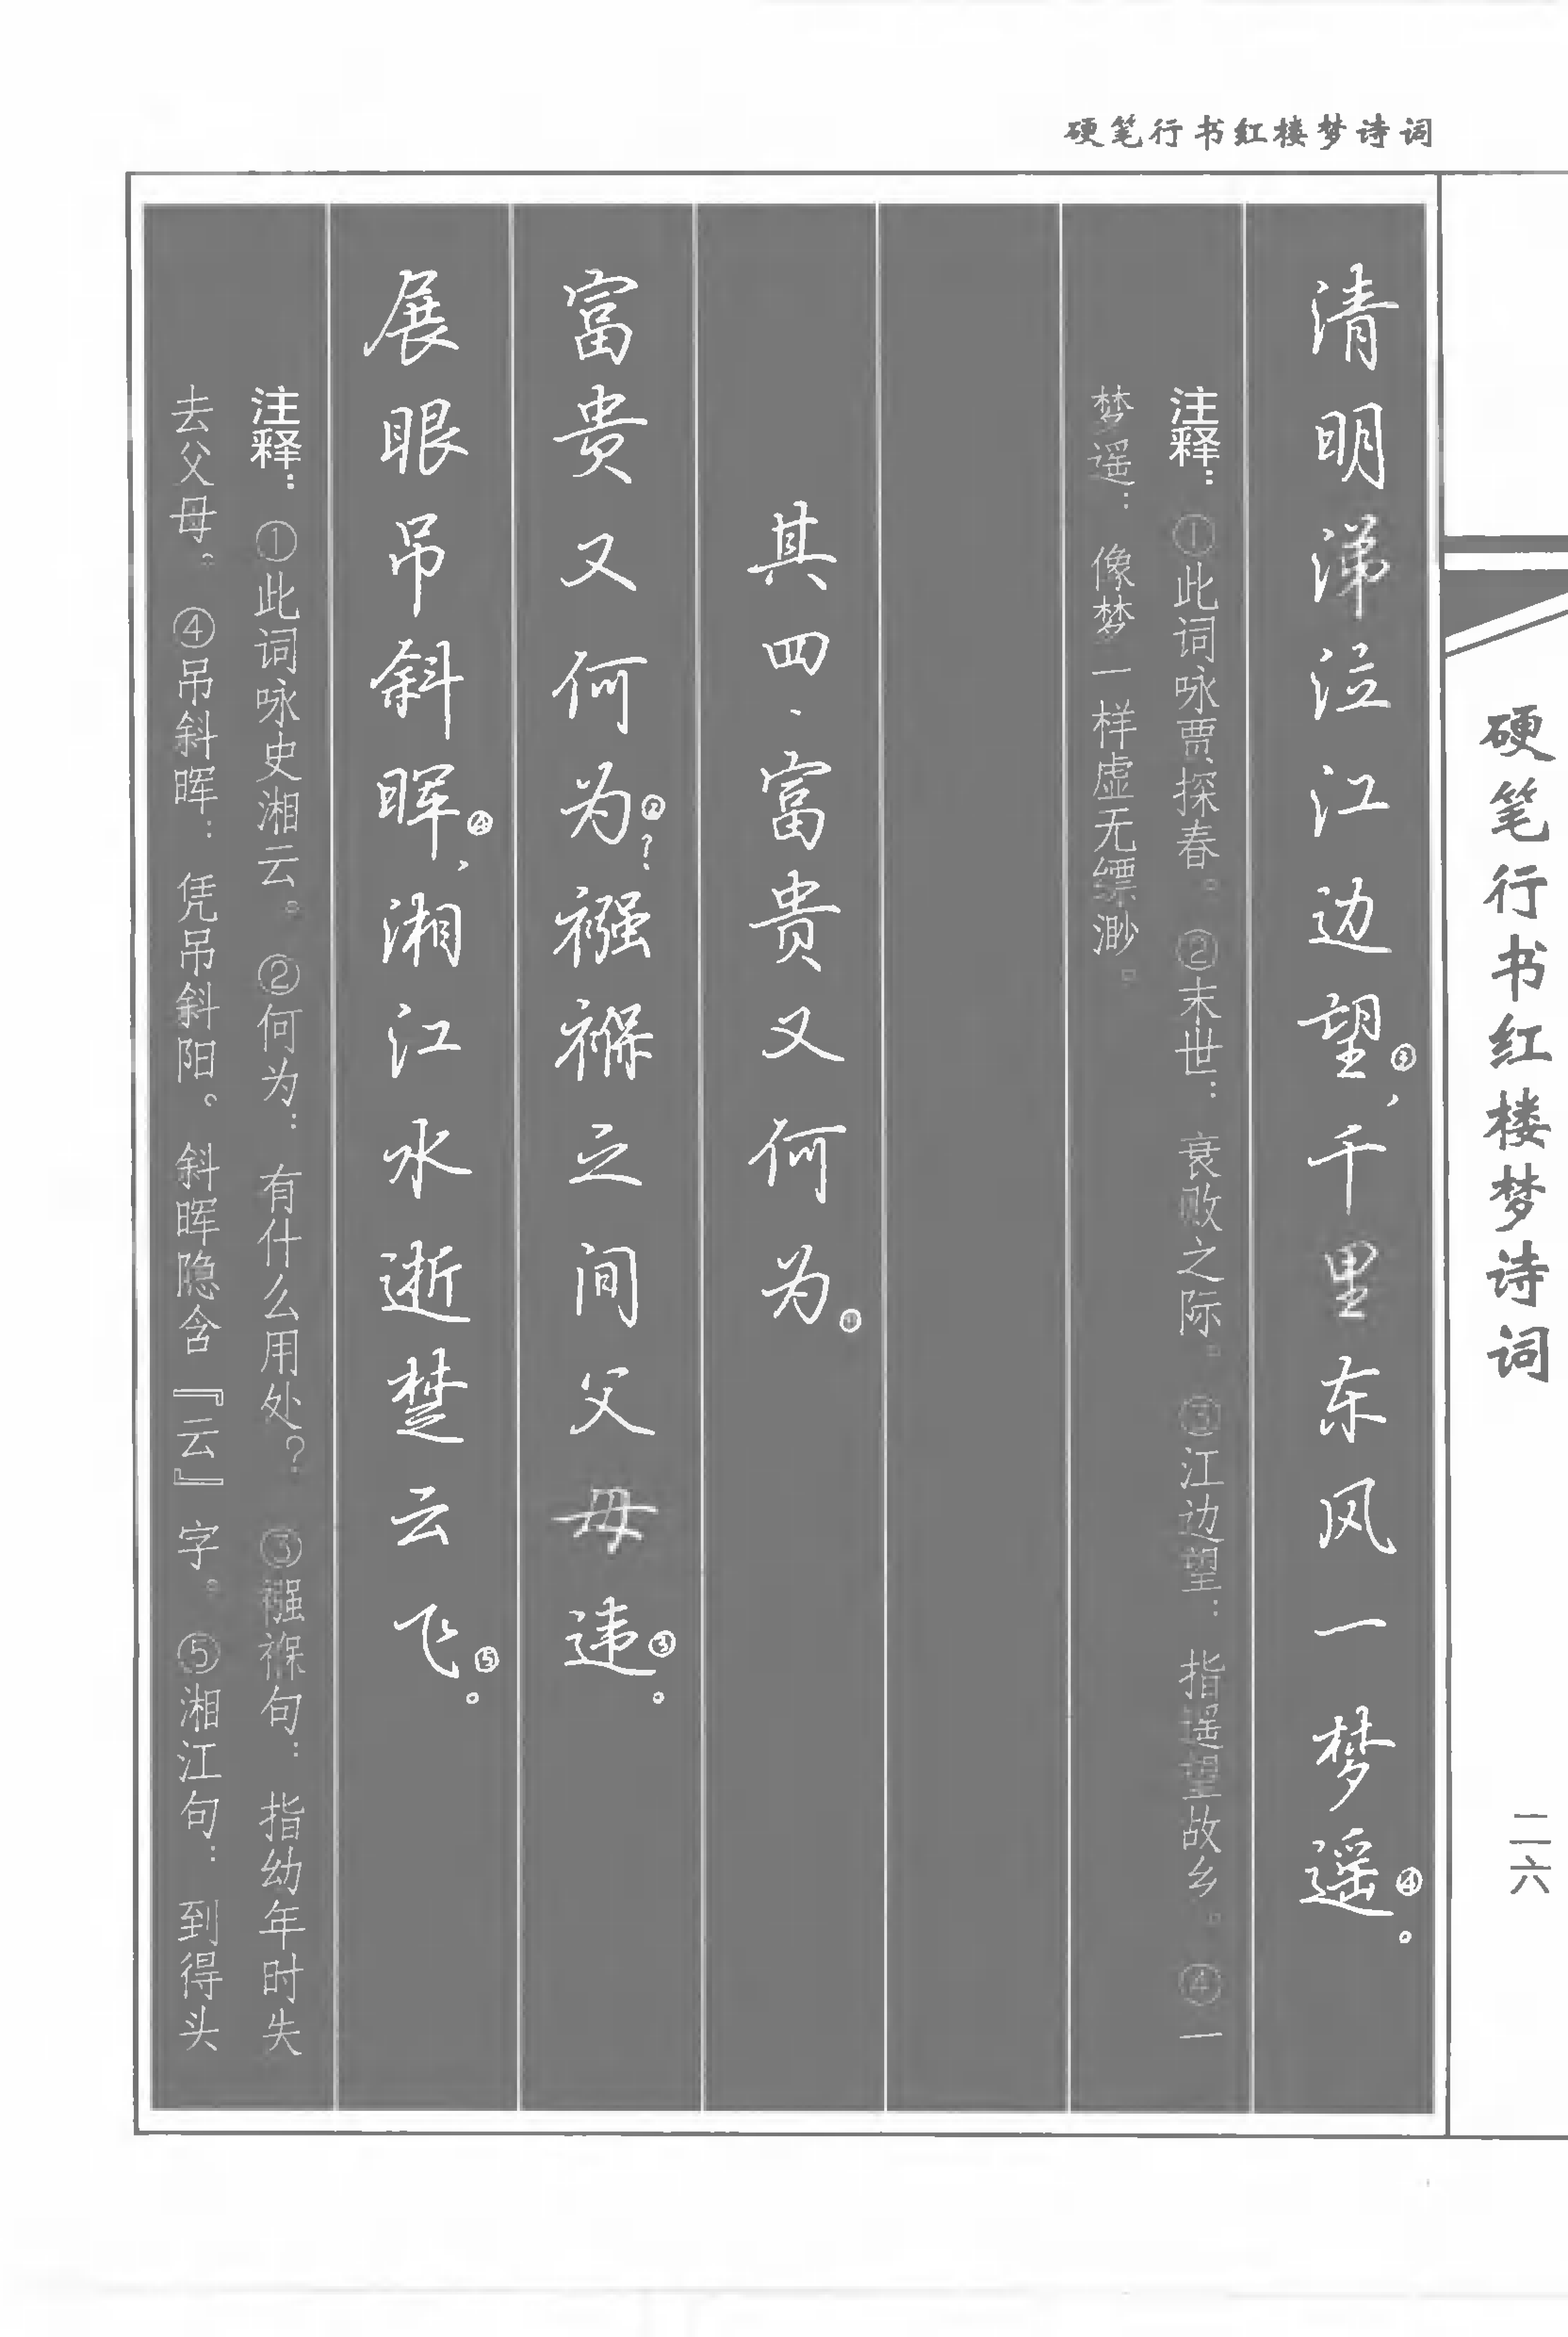 硬笔行书红楼梦诗词
清明涕泣江边望③，千里东风一梦遥④。
注释：①此词咏贾探春。②末世：衰败之际。③江边望：指遥望故乡。④一
梦遥：像梦一样虚无缥渺。
其四·富贵又何为①
富贵又何为②？襁褓之间父母违③。
展眼吊斜晖④，湘江水逝楚云飞⑤。
注释：①此词咏史湘云。②何为：有什么用处？③襁褓句：指幼年时失
去父母。④吊斜晖：凭吊斜阳。斜晖隐含『云』字。⑤湘江句：到得头
硬笔行书红楼梦诗词
二六